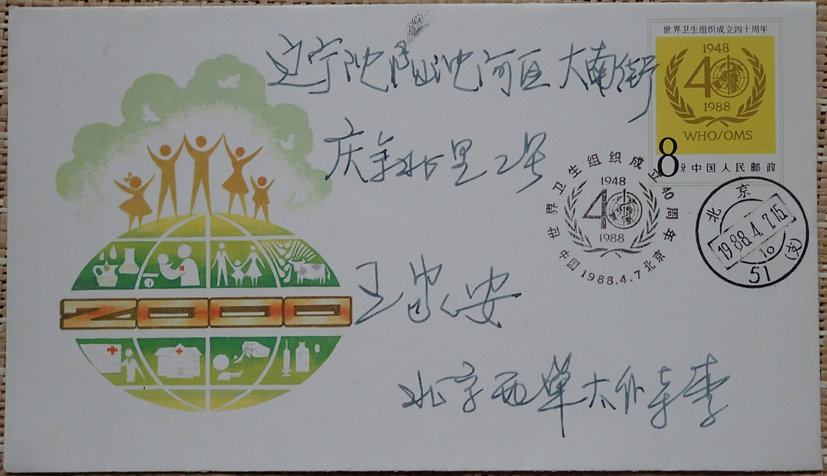 世界卫生组织成立四十周年
1948
40
1988
WHO/OMS
8分 中国人民邮政
辽宁沈阳沈河区大南街
庆余北里2号
世界卫生组织成立40周年
1948
40
1988
中国1988.4.7北京
北京
1988.4.7.15
10
51 (支)
2000
王家安
北京西单太仆寺李